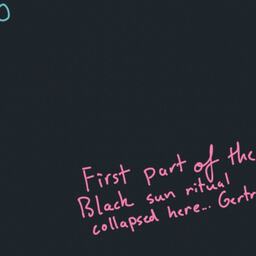 First part of the
Black sun ritual
collapsed here... Gertr